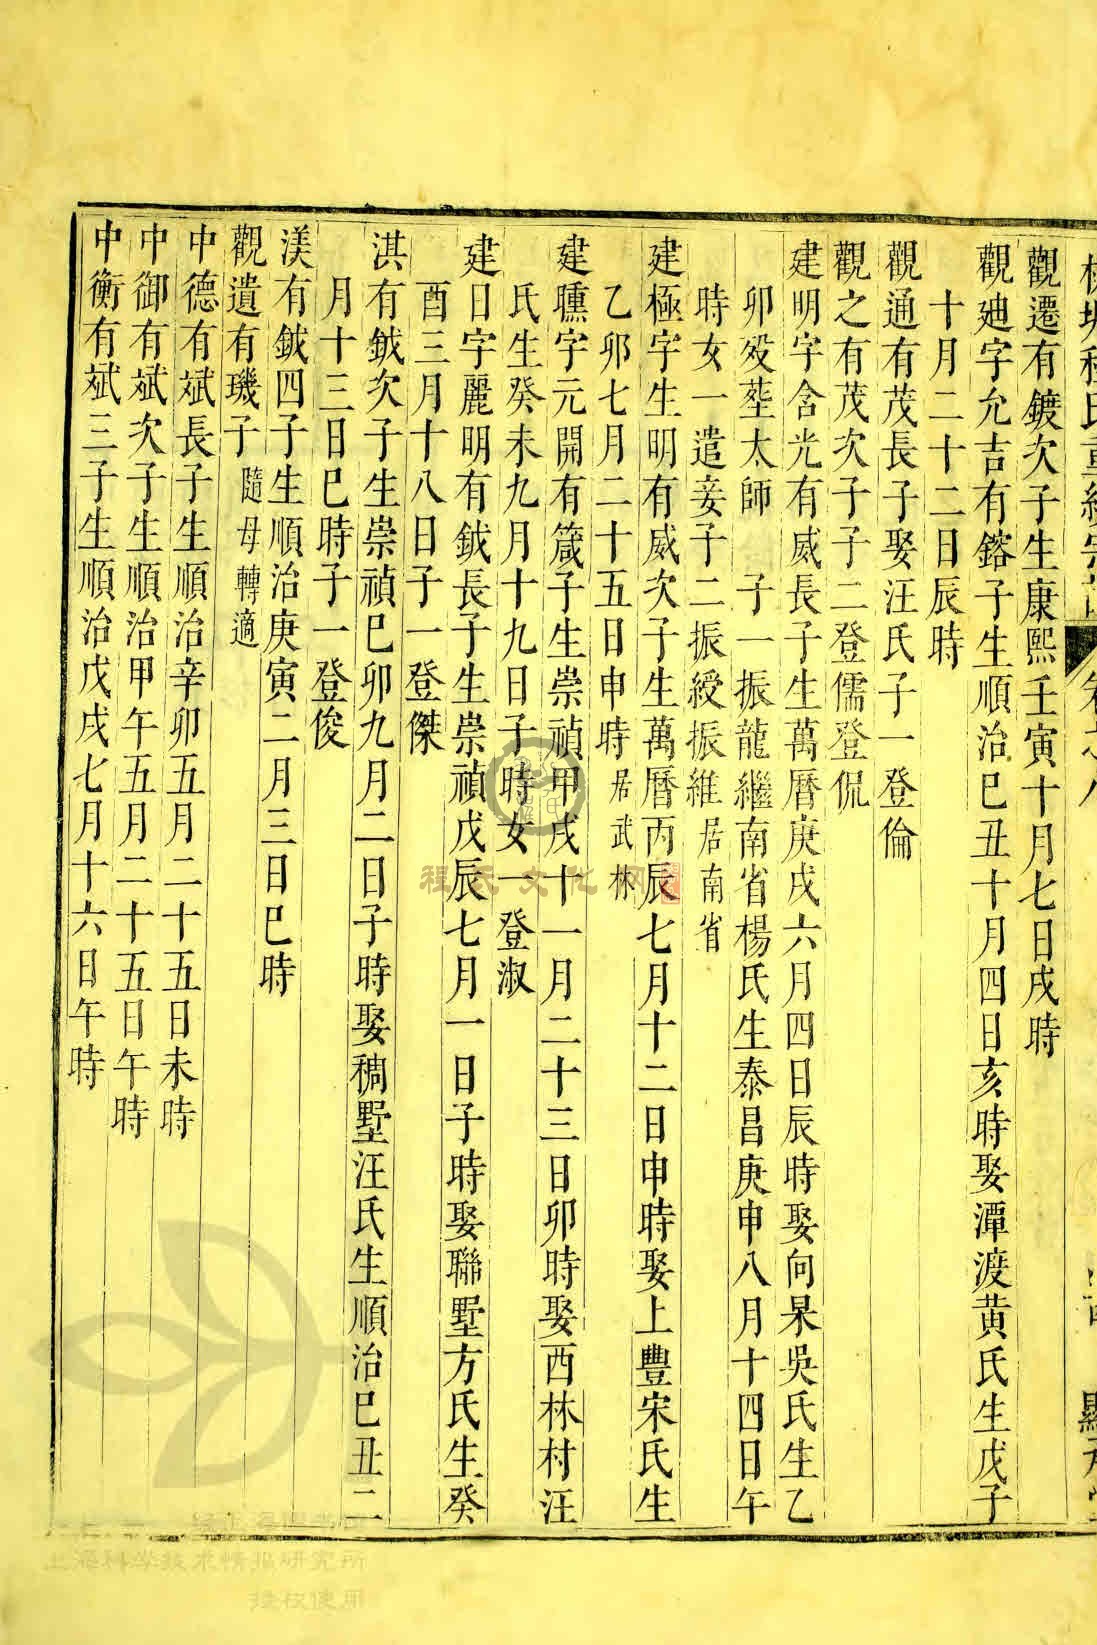 觀遷有鍍次子生康熙壬寅十月七日戌時
觀廸字允吉有鎔子生順治巳丑十月四日亥時娶潭渡黄氏生戊子
十月二十二日辰時
觀通有茂長子娶汪氏子一登倫
觀之有茂次子子二登儒登侃
建明字含光有威長子生萬曆庚戌六月四日辰時娶向杲吳氏生乙
卯歿塟太師 子一振龍繼南省楊氏生泰昌庚申八月十四日午
時女一遣妾子二振綬振維居南省
建極字生明有威次子生萬曆丙辰七月十二日申時娶上豐宋氏生
乙卯七月二十五日申時居武林
建曛字元開有箴子生崇禎甲戌十一月二十三日卯時娶西林村汪
氏生癸未九月十九日子時女一登淑
建日字麗明有鉞長子生崇禎戊辰七月一日子時娶聯墅方氏生癸
酉三月十八日子一登傑
淇有鉞次子生崇禎巳卯九月二日子時娶稠墅汪氏生順治巳丑二
月十三日巳時子一登俊
渼有鉞四子生順治庚寅二月三日巳時
觀遺有璣子隨母轉適
中德有斌長子生順治辛卯五月二十五日未時
中御有斌次子生順治甲午五月二十五日午時
中衡有斌三子生順治戊戌七月十六日午時
程氏文化网
上海科学技术情报研究所
授权使用